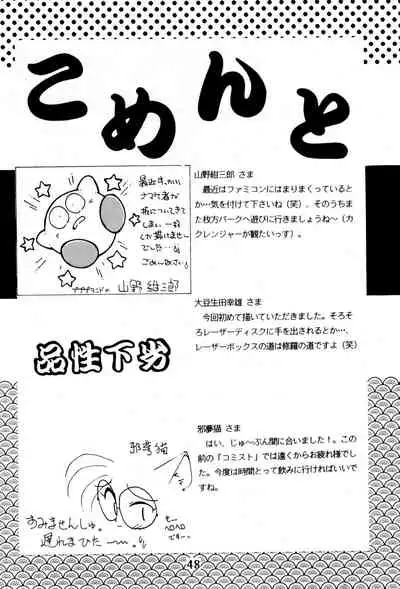 こめんと
最近すっかり
ナマケ者が
板についてき
てしまい一枚
しか描けません
でした…。
ごめんなさい
山野紺三郎
山野紺三郎 さま
最近はファミコンにはまりまくっていると
か…気を付けて下さいね（笑）、そのうちま
た枚方パークへ遊びに行きましょうね～（カ
クレンジャーが観たいっす）。
大豆生田幸雄 さま
今回初めて描いていただきました。そろそ
ろレーザーディスクに手を出されるとか…、
レーザーボックスの道は修羅の道ですよ（笑）
品性下劣
邪夢猫 さま
はい、じゅ～ぶん間に合いました！。この
前の「コミスト」では遠くからお疲れ様でし
た。今度は時間とって飲みに行ければいいで
すね。
邪夢猫
すみませんしゅ。
遅れまひた～～。
も～
ヘロヘロ
です…
48